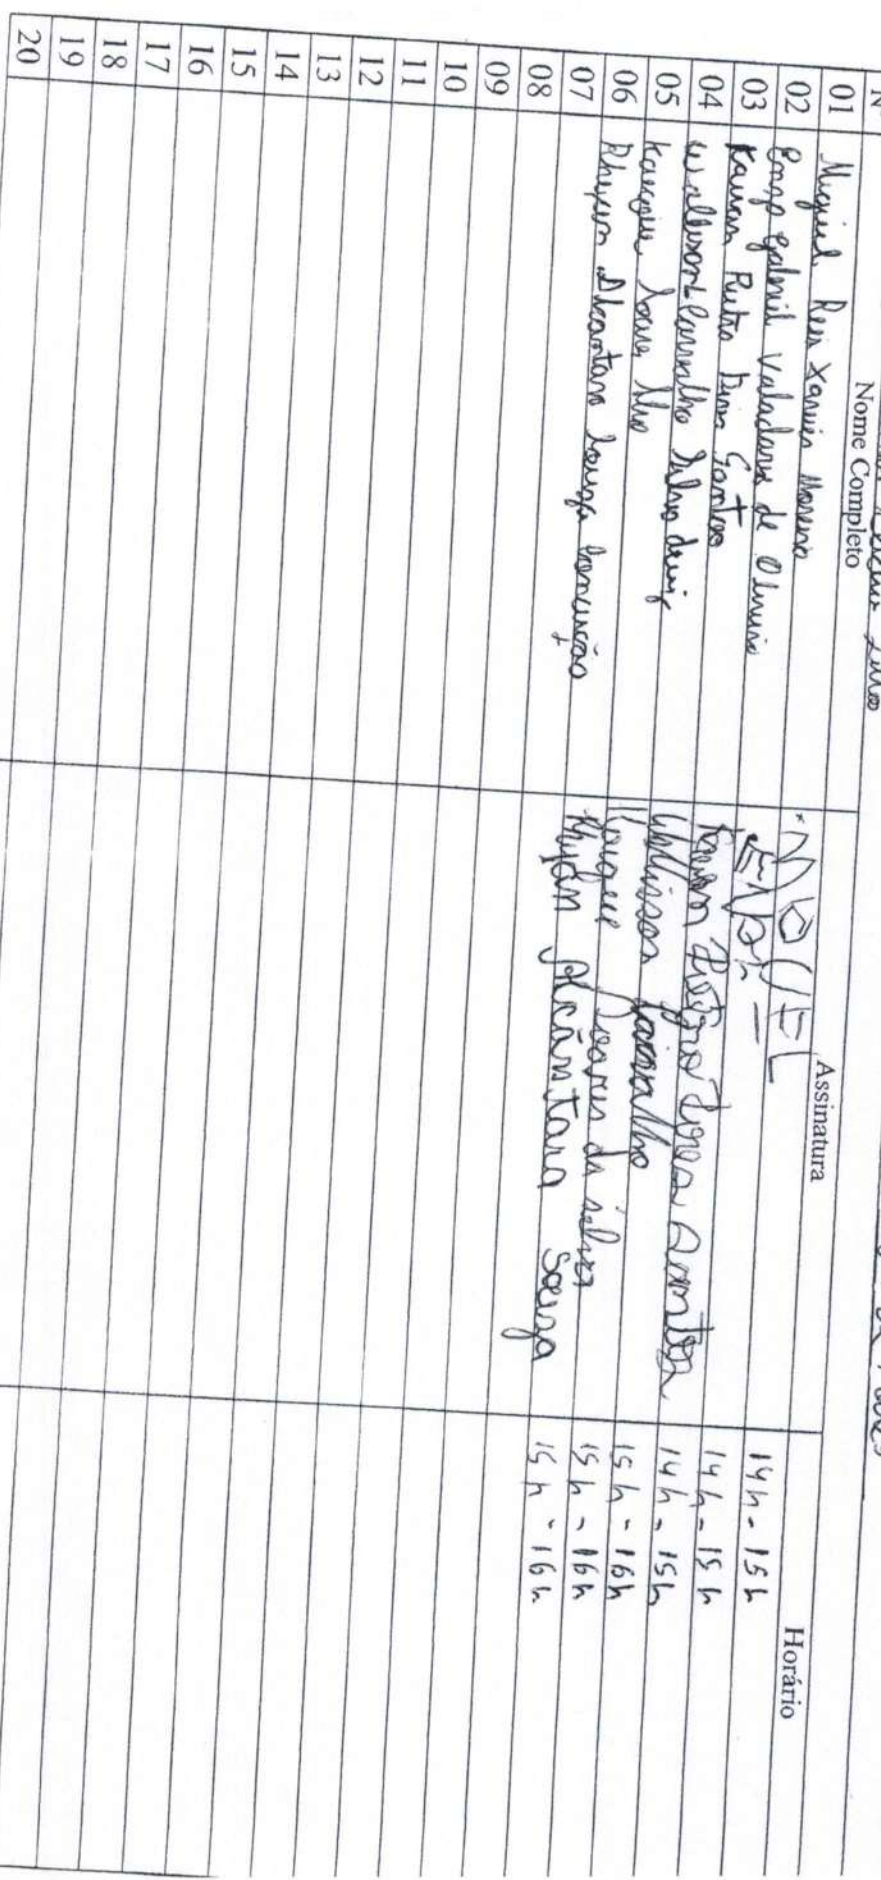 Nº Nome Completo Assinatura Horário
01 Miguel Reis Xavier Moreno MIGUEL 14h - 15h
02 Enzo Gabriel Valadares de Oliveira ENZO 14h - 15h
03 Kauan Pietro Santos Kauan Pietro 14h - 15h
04 Wallison Carvalho Silva Wallisson Carvalho 15h - 16h
05 Kauque Soares Kauque Soares da silva 15h - 16h
06 Rhyan Alcantara Souza Conceição Rhyan Alcântara Souza 15h - 16h
07
08
09
10
11
12
13
14
15
16
17
18
19
20